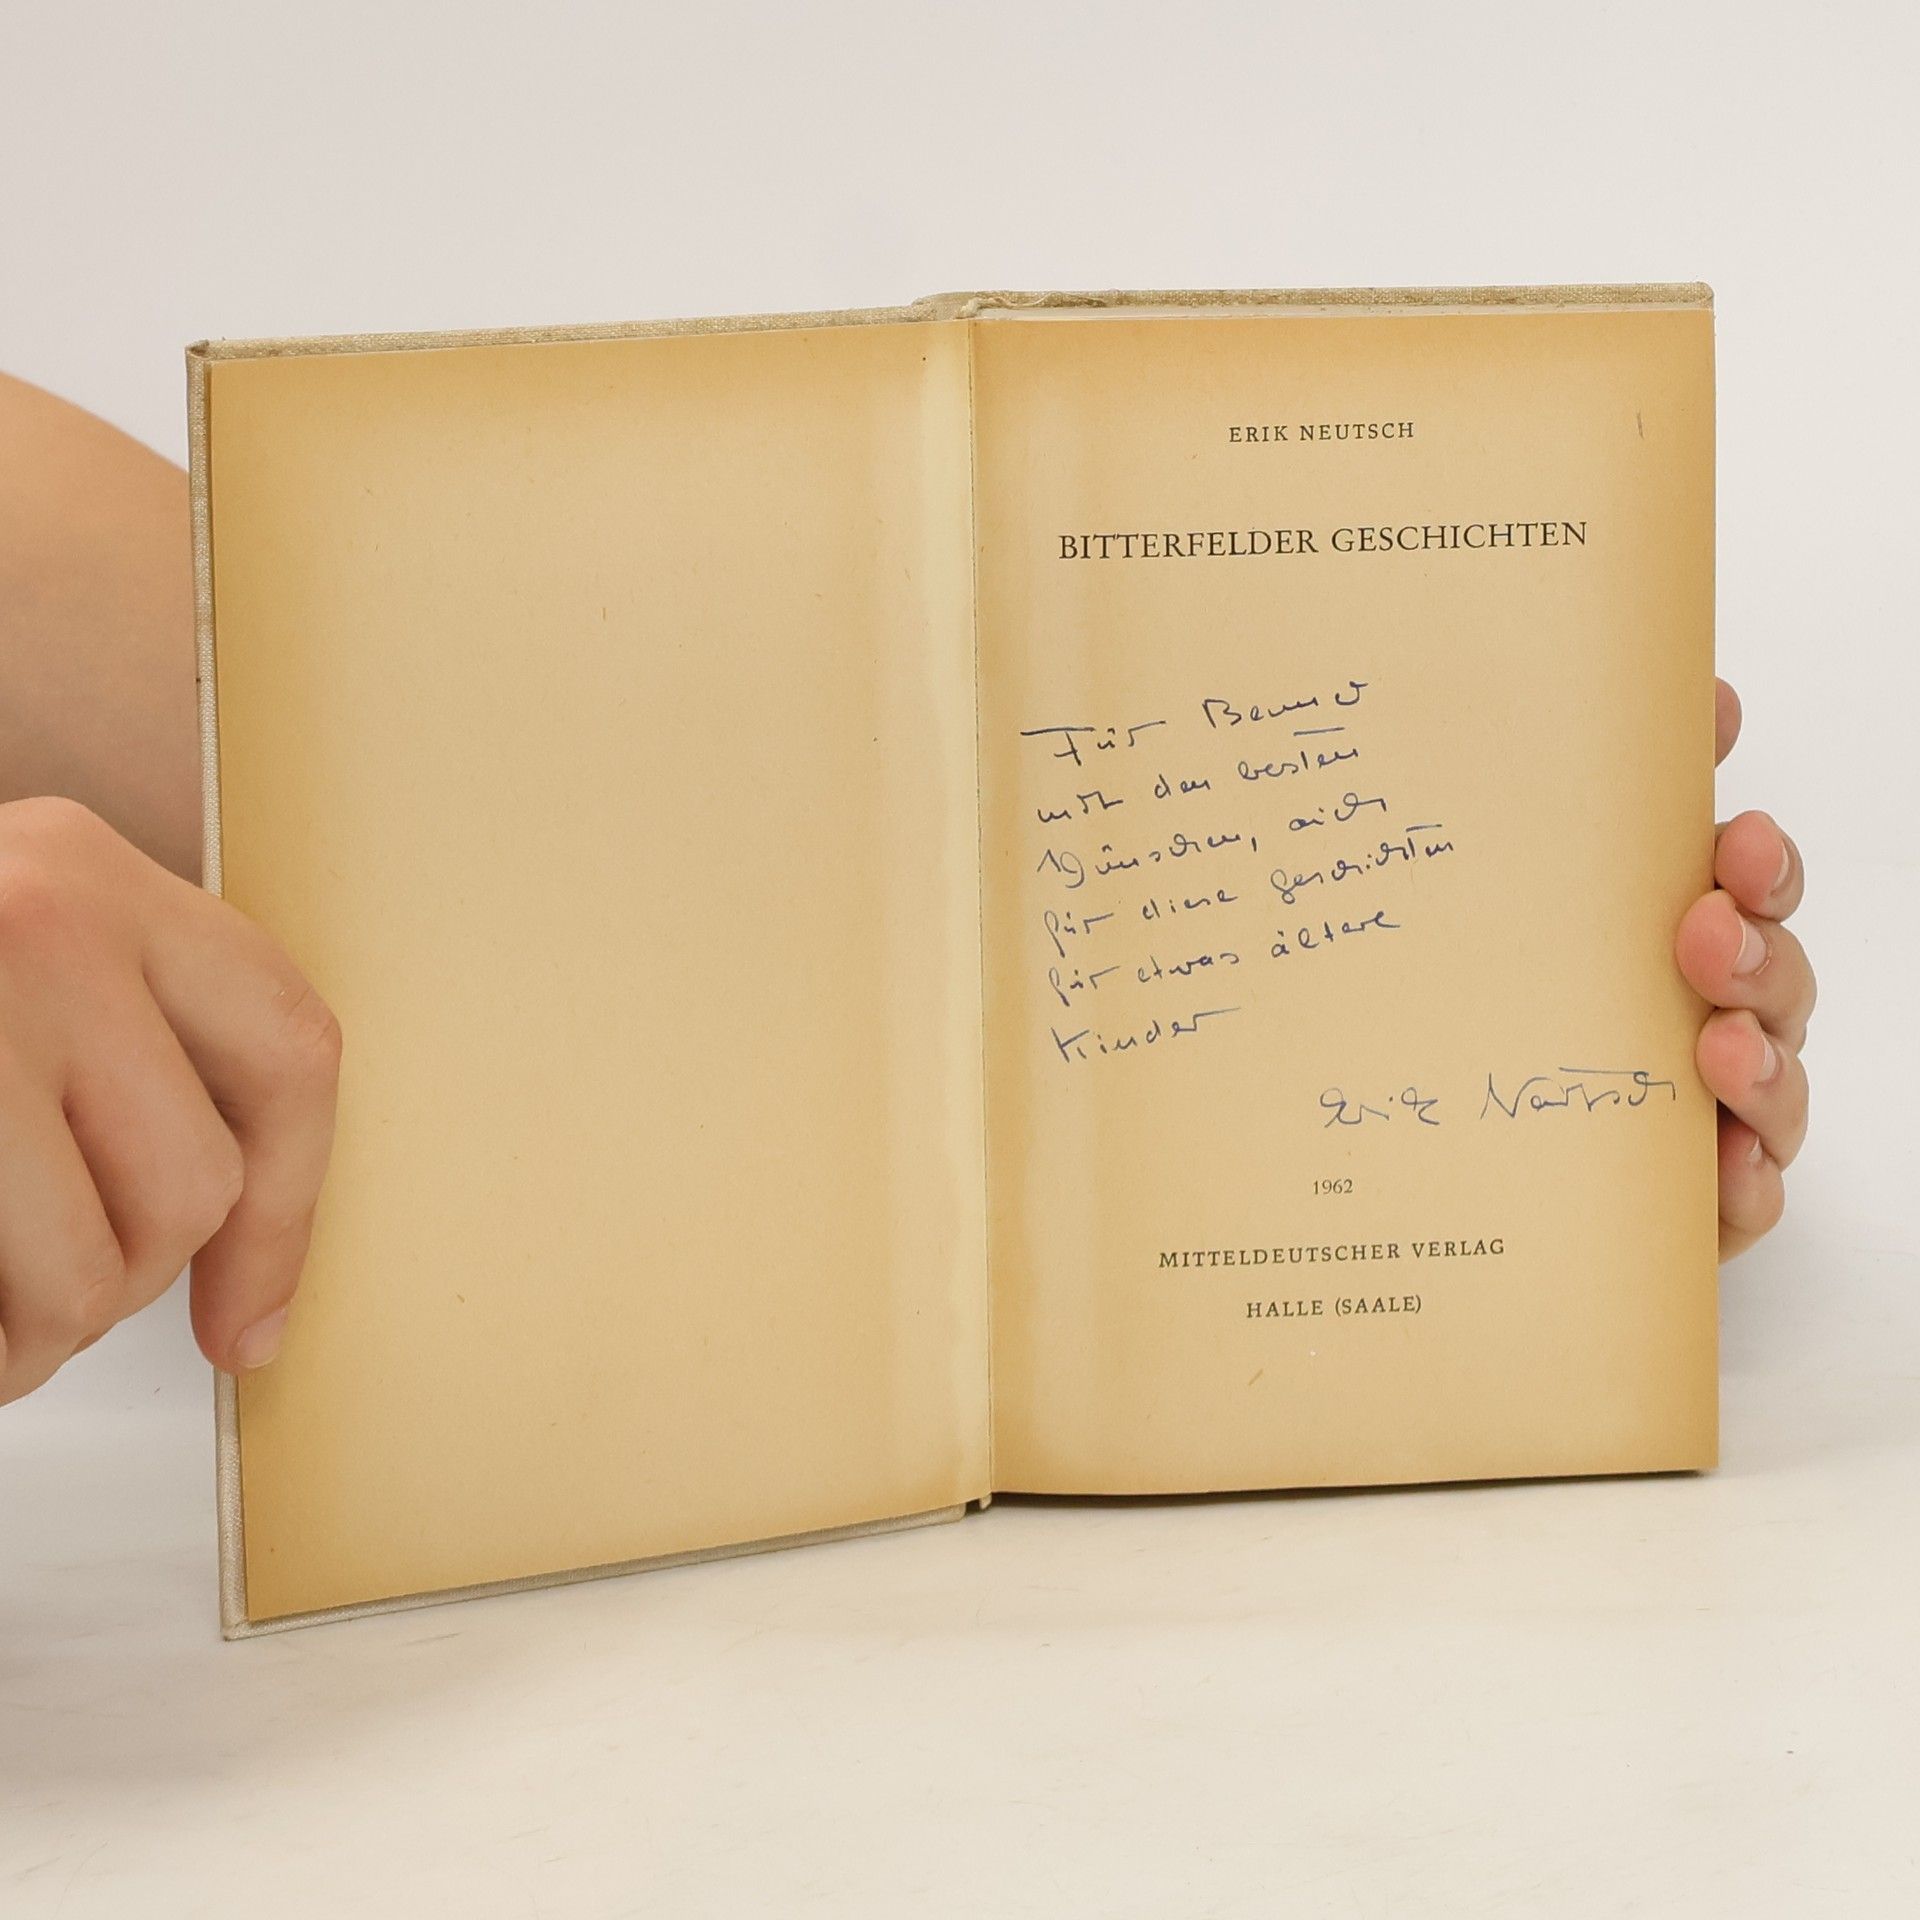 ERIK NEUTSCH
BITTERFELDER GESCHICHTEN
Für
mit den besten
Wünschen, auch
für diese Geschichten
für etwas ältere
Kinder
Erik Neutsch
1962
MITTELDEUTSCHER VERLAG
HALLE (SAALE)